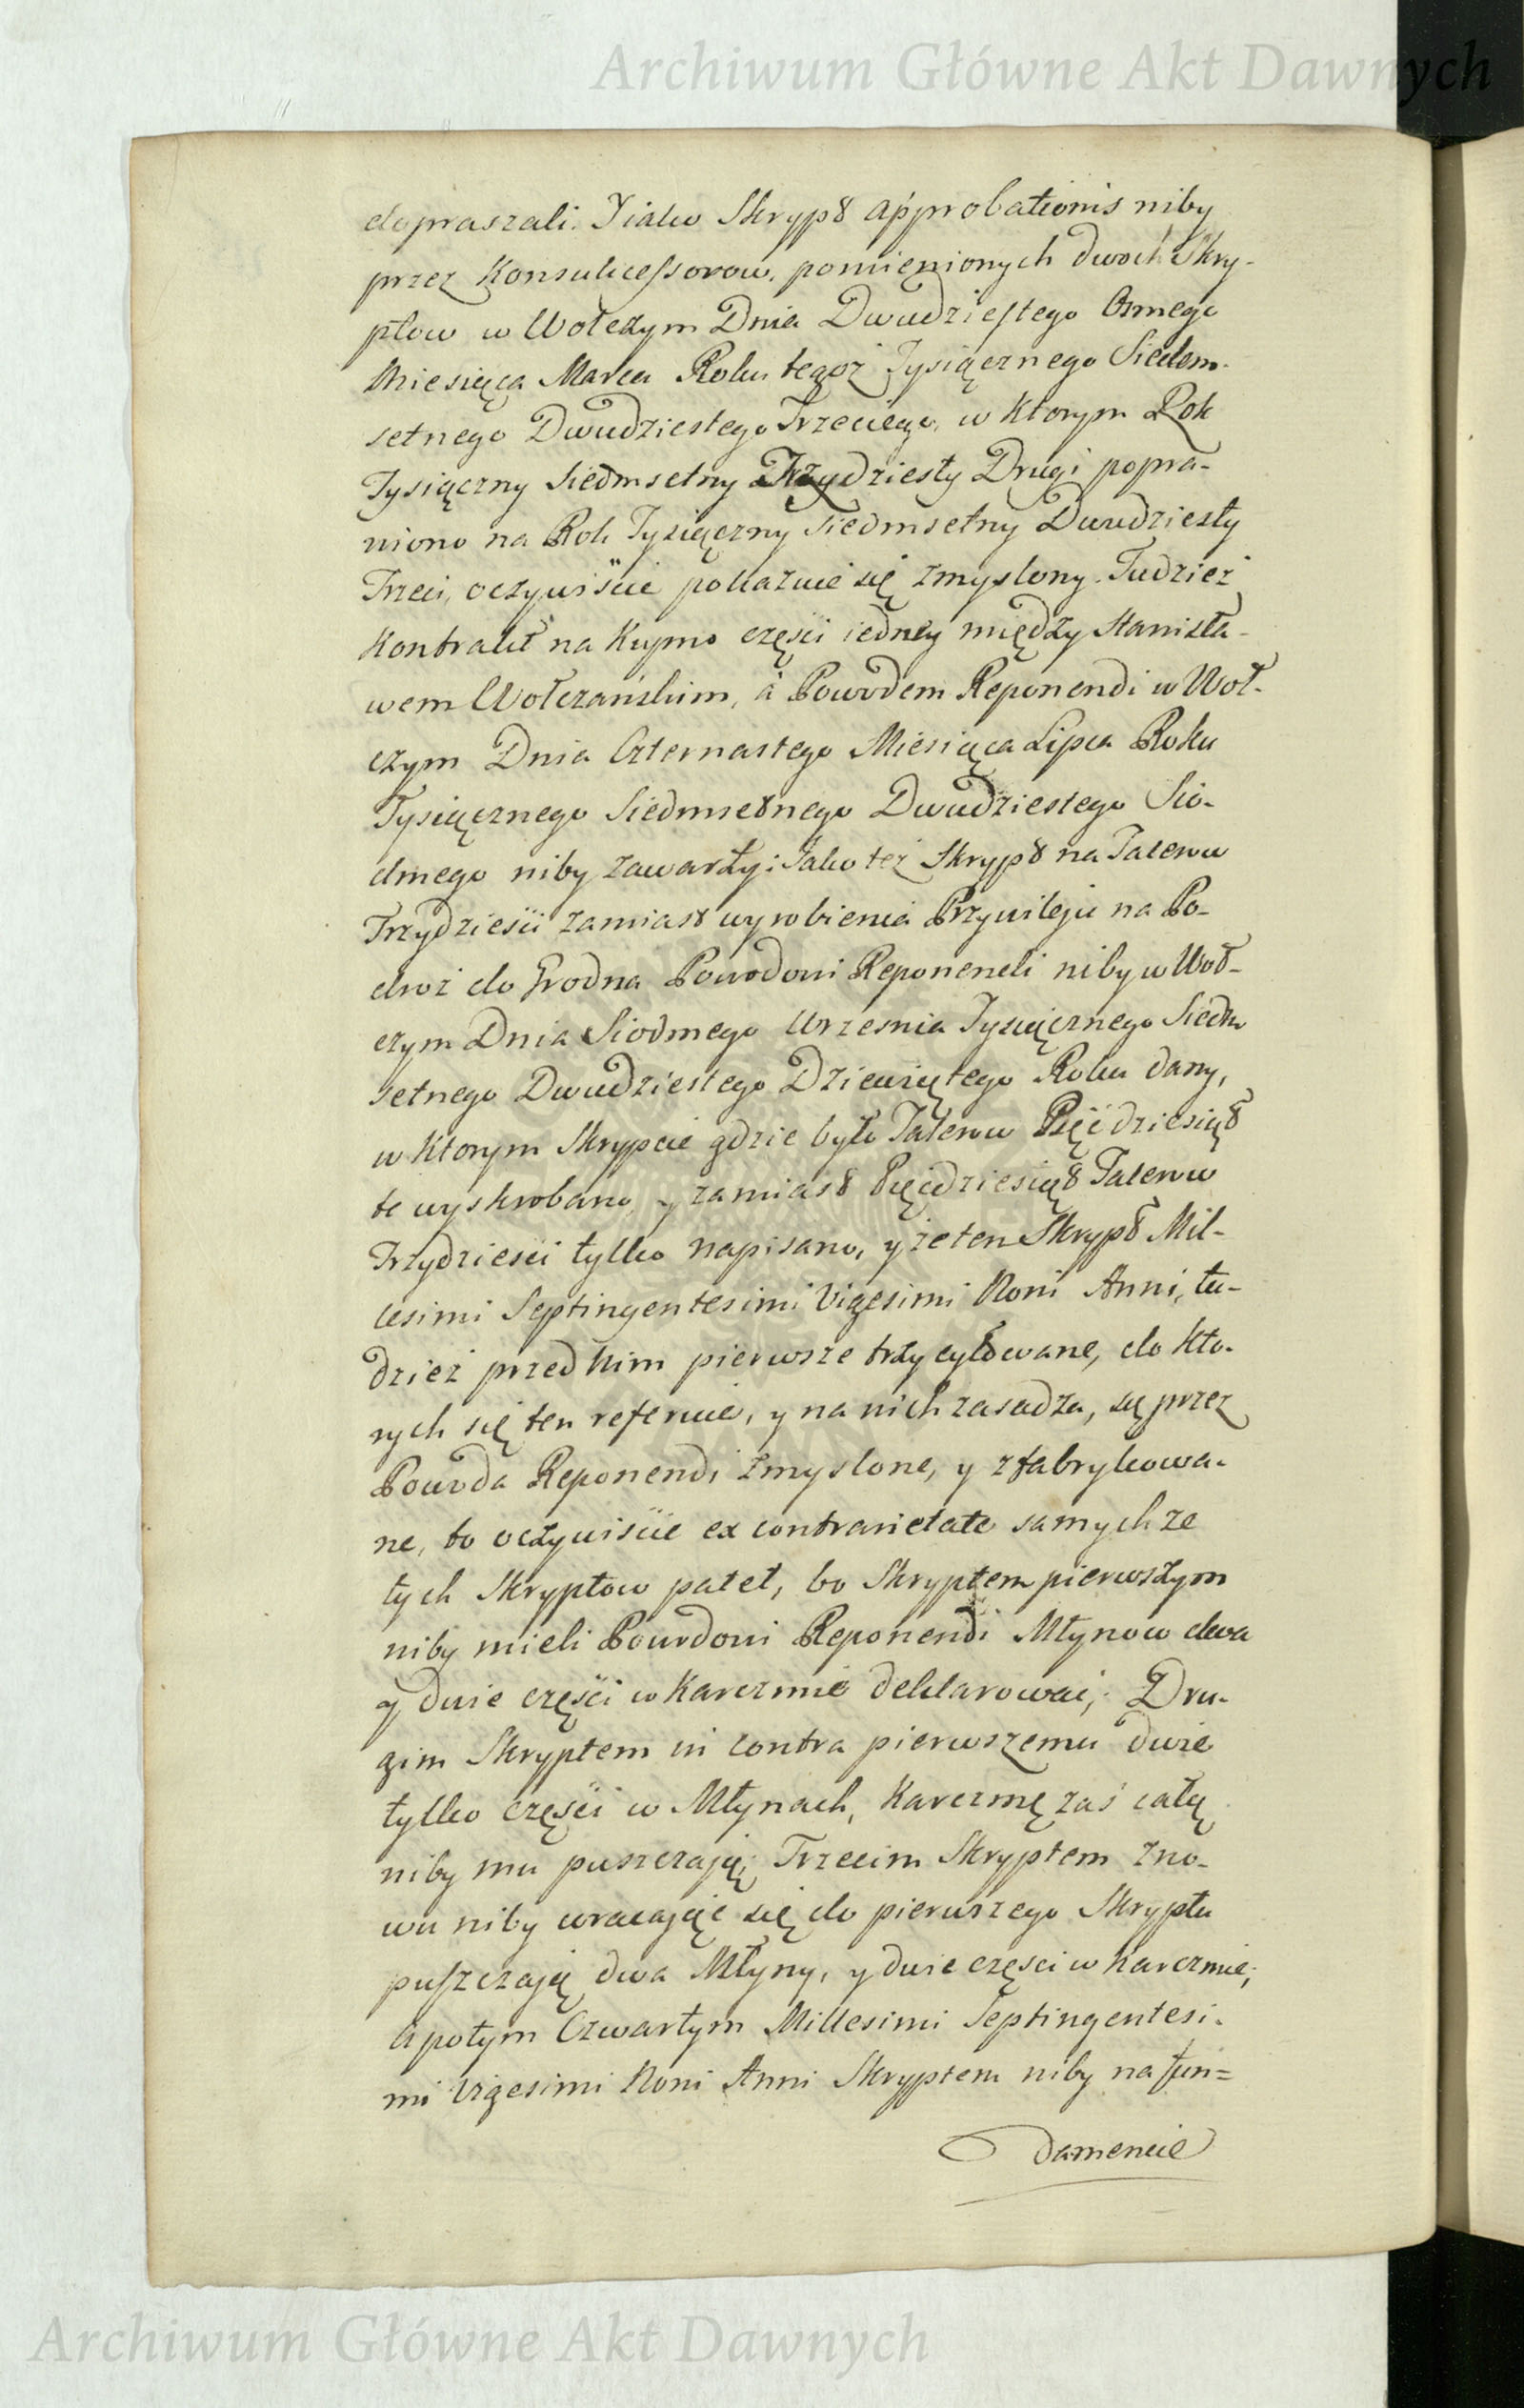 Archiwum Główne Akt Dawnych
dopraszali. Jiako Skrypt approbationis niby
przez Konsukcessorow, pomienionych dwoch Skry-
ptow w Wołczym Dnia Dwudziestego Osmego
Miesiąca Marca Roku tegoż Tysiącznego Siedem-
setnego Dwudziestego Trzeciego, w Ktorym Rok
Tysiączny Siedmsetny Trzydziesty Drugi popra-
wiono na Rok Tysiączny Siedmsetny Dwudziesty
Trzeci, oczywiście pokazuie się zmyslony. Tudziez
Kontrakt na Kupno części iedney między Stanisła-
wem Wołczańskim, á Powodem Reponendi w Woł-
czym Dnia Czternastego Miesiąca Lipca Roku
Tysiącznego Siedmsetnego Dwudziestego Sio-
dmego niby zawarty: Jako też Skrypt na Talerow
Trzydzieści zamiast wyrobienia Przywileju na Po-
droż do Grodna Powodowi Reponendi niby w Woł-
czym Dnia Siodmego Wrzesnia Tysiącznego Siedm
setnego Dwudziestego Dziewiętego Roku dany,
w Ktorym Skrypcie gdzie było Talerow Pięćdziesiąt
te wyskrobano, y zamiast Pięćdziesiąt Talerow
Trzydzieści tylko napisano, y że ten Skrypt Mil-
lesimi Septingentesimi Vigesimi Noni Anni, tu-
dzież przed Nim pierwsze trzy cytowane, do Kto-
rych się ten referuie, y na nich zasadza, są przez
Powoda Reponendi zmyslone, y zfabrykowa-
ne, to oczywiście ex contrarietate samychże
tych Skryptow patet, bo Skryptem pierwszym
niby mieli Powodowi Reponendi Młynow dwa
y dwie części w Karczmie deklarować; Dru-
gim Skryptem in contra pierwszemu dwie
tylko części w Młynach, Karczmę zaś całą
niby mu puszczaią; Trzecim Skryptem zno-
wu niby wracając się do pierwszego Skryptu
puszczają dwa Młyny, y dwie części w Karczmie;
á potym Czwartym Millesimi Septingentesi-
mi Vigesimi Noni Anni Skryptem niby na fun=
damencie
Archiwum Główne Akt Dawnych